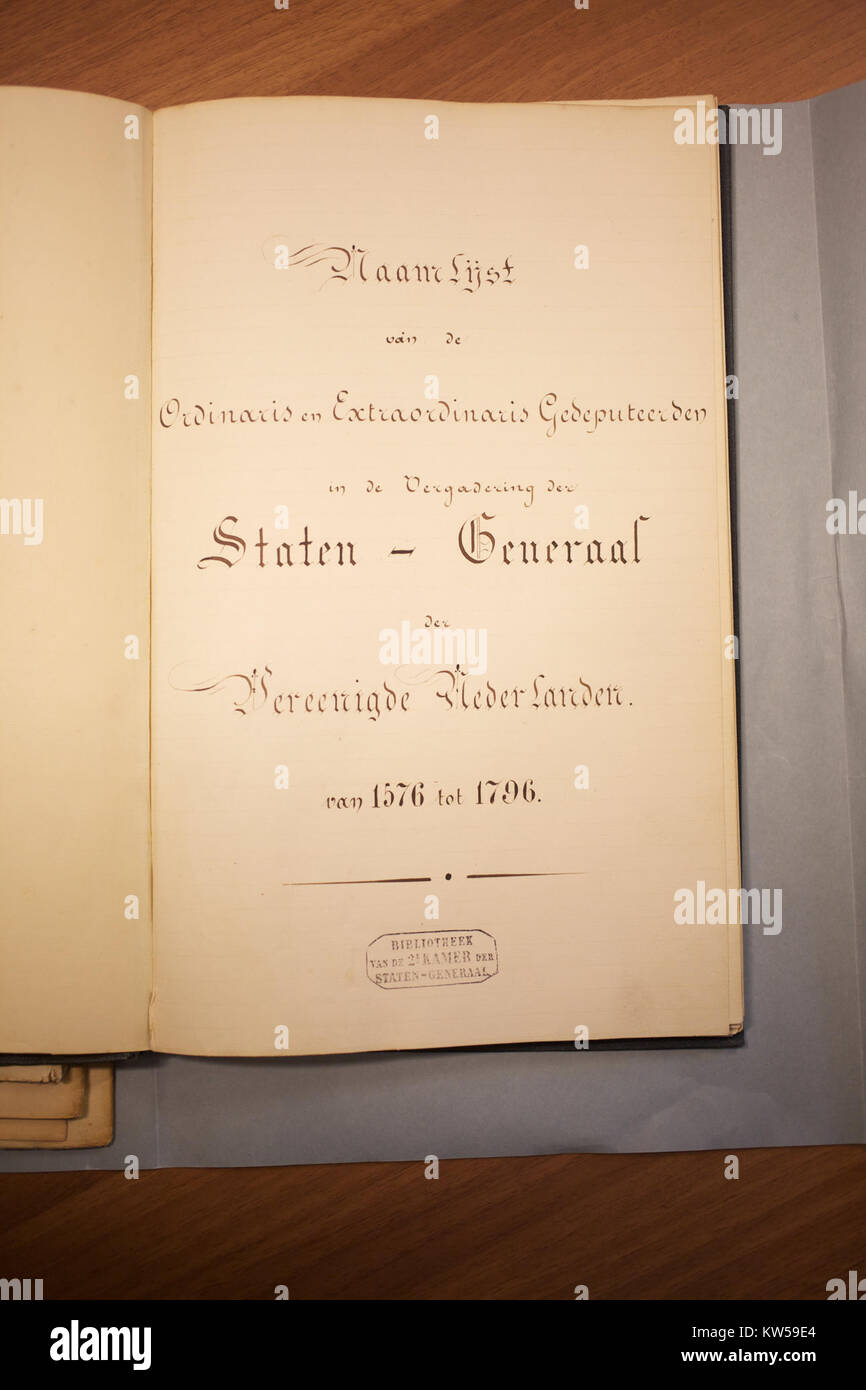 Naamlijst
van de
Ordinaris en Extraordinaris Gedeputeerden
in de Vergadering der
Staten - Generaal
der
Vereenigde Nederlanden.
van 1576 tot 1796.
BIBLIOTHEEK
VAN DE 2E KAMER DER
STATEN-GENERAAL
alamy
alamy
Image ID: KW59E4
www.alamy.com